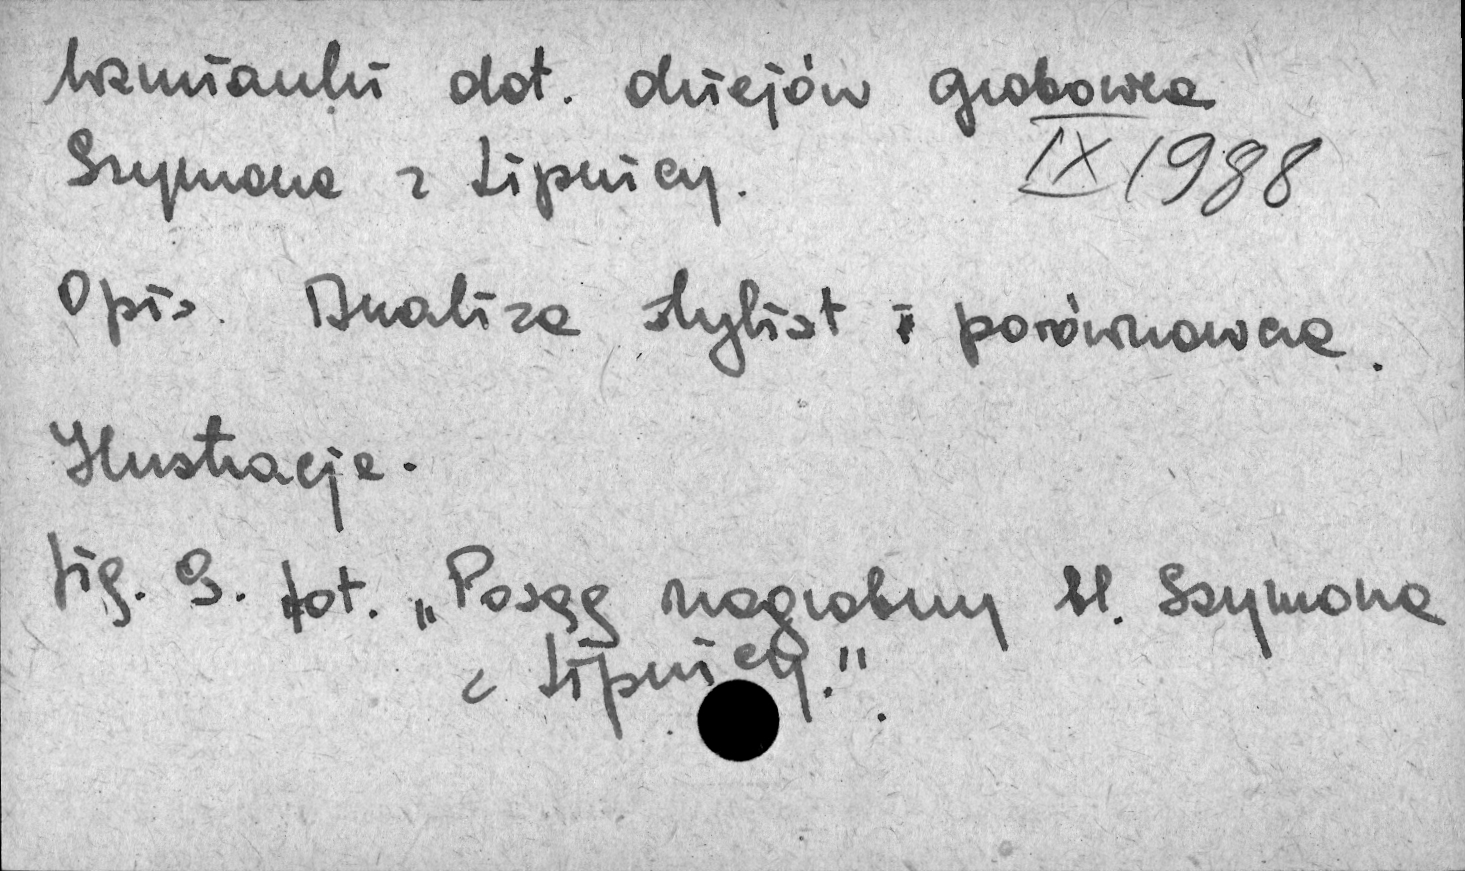 Wzmianki dot. dziejów grobowca
Szymona z Lipnicy. IX 1988
Opis. Analiza stylist i porównawcza.
Ilustracje.
Fig. 9. fot. „Posąg nagrobny bł. Szymona
z Lipnicy.".